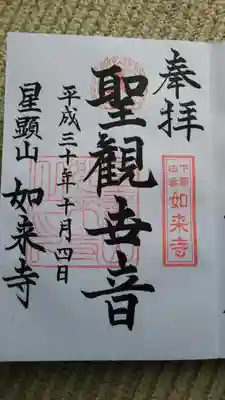 奉拝
如来寺
聖観世音
平成三十年十月四日
星顕山 如来寺